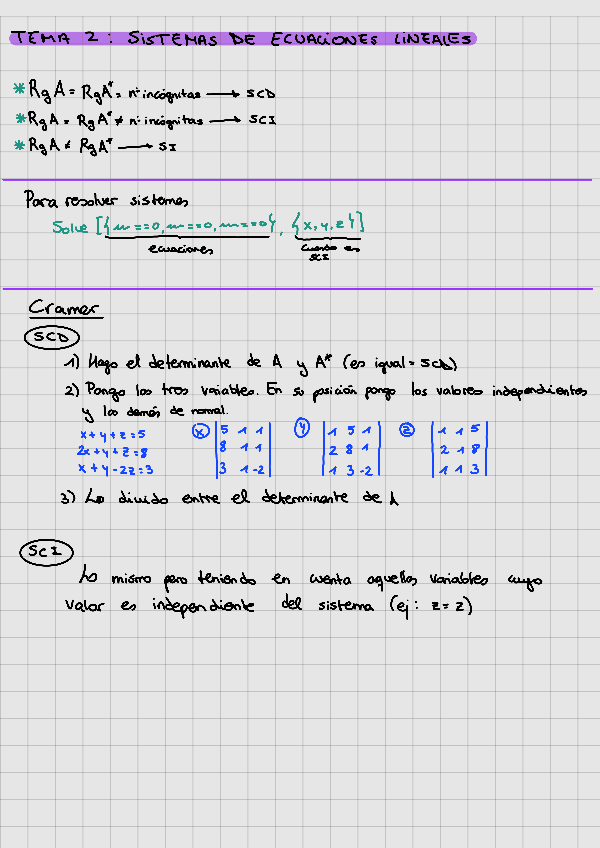 TEMA 2: SISTEMAS DE ECUACIONES LINEALES
* Rg A = Rg A* = nº incógnitas → SCD
* Rg A = Rg A* ≠ nº incógnitas → SCI
* Rg A ≠ Rg A* → SI
Para resolver sistemas
Solve [{m==0, m==0, m==0}, {x,y,z}]
ecuaciones
cuando es
SCI
Cramer
SCD
1) Hago el determinante de A y A* (es igual = SCD)
2) Pongo las tres variables. En su posición pongo los valores independientes
y las demás de normal.
x + y + z = 5
2x + y + z = 8
x + y - 2z = 3
x
5 1 1
8 1 1
3 1 -2
y
1 5 1
2 8 1
1 3 -2
z
1 1 5
2 1 8
1 1 3
3) Lo divido entre el determinante de A
SCI
Lo mismo pero teniendo en cuenta aquellas variables cuyo
valor es independiente del sistema (ej: z = z)